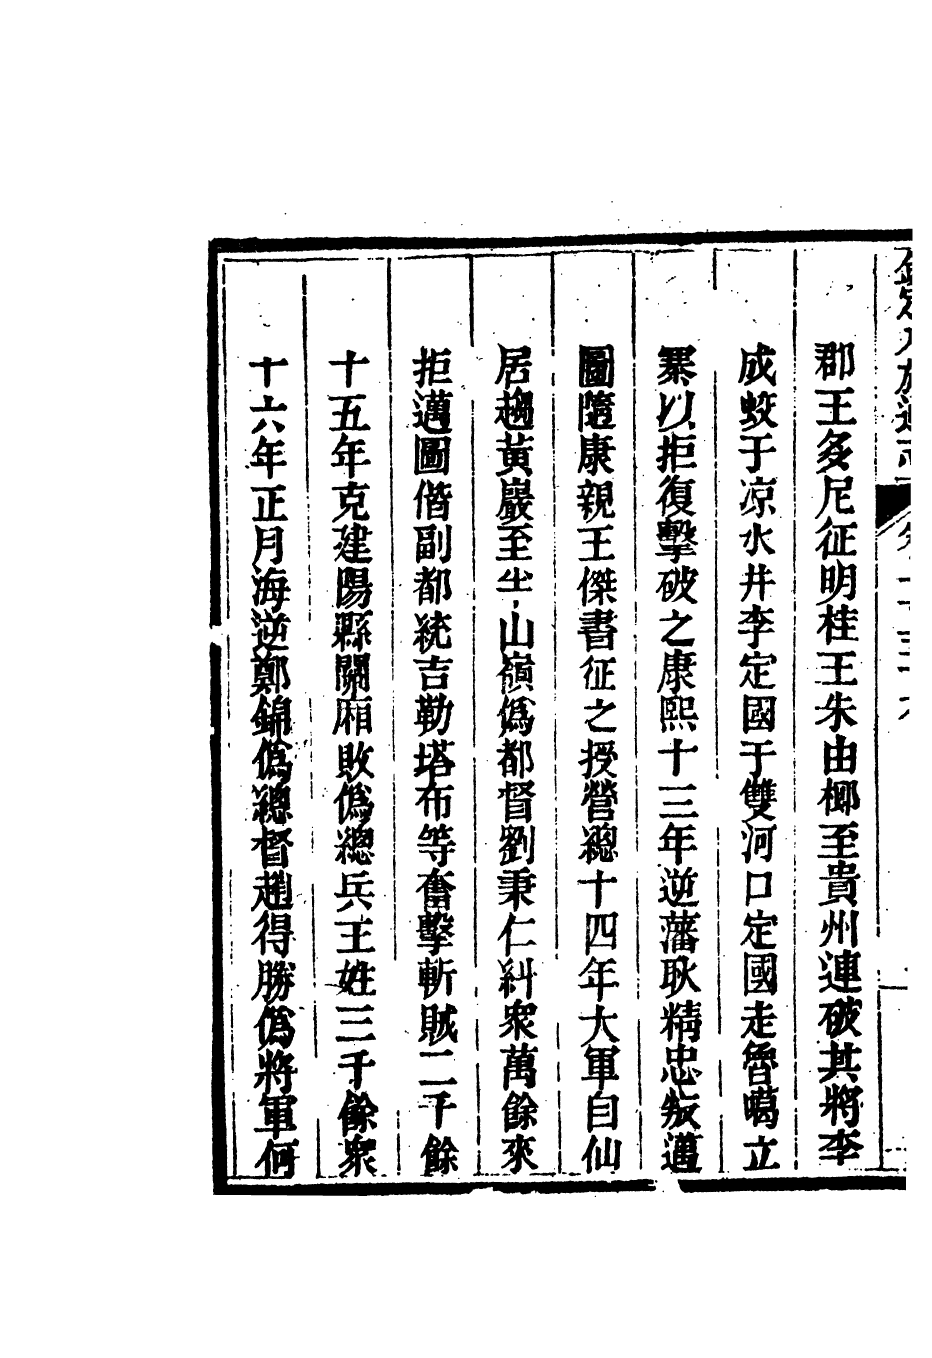 郡王多尼征明桂王朱由榔至貴州連破其將李
成蛟于凉水井李定國于雙河口定國走魯噶立
寨以拒復擊破之康熙十三年逆藩耿精忠叛邁
圖隨康親王傑書征之授營總十四年大軍自仙
居趨黃巖至半山嶺僞都督劉秉仁糾衆萬餘來
拒邁圖偕副都統吉勒塔布等奮擊斬賊二千餘
十五年克建陽縣關廂敗僞總兵王姓三千餘衆
十六年正月海逆鄭錦僞總督趙得勝僞將軍何